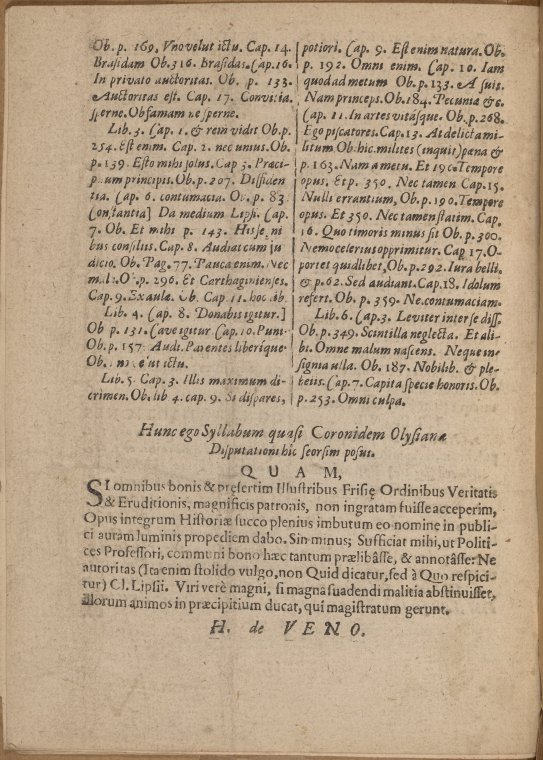 Ob. p. 169. Vno velut ictu. Cap. 14.
Brasidam Ob. 316. Brasidas. Cap. 16.
In privato auctoritas. Ob. p. 133.
Auctoritas est. Cap. 17. Convitia
sperne. Ob famam ne sperne.
Lib. 3. Cap. 1. & rem vidit Ob. p.
254. Est enim. Cap. 2. nec unius. Ob.
p. 139. Esto mihi solus. Cap 5. Præci-
puum principis. Ob. p. 207. Dissiden
tia. Cap. 6. contumacia. Ob. p. 83.
Constantia] Da medium Lipsi. Cap.
7. Ob. Et mihi p. 143. Hisce ni
bus consiliis. Cap. 8. Audiat cum ju
dicio. Ob. Pag. 77. Pauca enim. Nec
p. 296. Et Carthaginienses.
Cap. 9. Exaulæ. Ob. Cap. 11. hoc ib.
Lib. 4. Cap. 8. Donabis igitur.]
Ob p. 131. Cave igitur. Cap. 10. Punt.
Ob. p. 157. Aud. Parentes liberique
Ob. ictu.
Lib. 5. Cap. 3. Illis maximum di-
crimen. Ob. lib 4. cap. 9. Si dispares,
potiori. Cap. 9. Est enim natura. Ob.
p. 192. Omni enim. Cap. 10. Iam
quod ad metum Ob. p. 133. A suis.
Nam princeps. Ob. 184. Pecunia &c.
Cap. 11. In artes vitasque. Ob. p. 268.
Ego piscatores. Cap. 13. At delicta mi-
litum Ob. hic. milites (inquit) pœna &
p. 163. Nam a metu. Et 190. Tempore
opus. Et p. 350. Nec tamen Cap. 15.
Nulli errantium, Ob. p. 190. Tempore
opus. Et 350. Nec tamen statim. Cap.
16. Quo timoris minus sit Ob. p. 300.
Nemo celerius opprimitur. Cap 17. O-
portet quidlibet, Ob. p. 292. Iura belli,
& p. 62. Sed audiant. Cap. 18. Idolum
refert. Ob. p. 359. Ne contumaciam.
Lib. 6. Cap. 3. Leviter inter se diss.
Ob. p. 349. Scintilla neglecta. Et ali-
bi. Omne malum nascens. Neque in-
signia ulla. Ob. 187. Nobilib. & ple-
beiis. Cap. 7. Capita specie honoris. Ob.
p. 253. Omni culpa.
Hunc ego Syllabum quasi Coronidem Olysianæ
Disputationi hic seorsim posui.
QUAM,
SI omnibus bonis & præsertim Illustribus Frisię Ordinibus Veritatis
& Eruditionis, magnificis patronis, non ingratam fuisse acceperim,
Opus integrum Historiæ succo plenius imbutum eo nomine in publi-
ci auram luminis propediem dabo. Sin minus; Sufficiat mihi, ut Politi-
ces Professori, communi bono hæc tantum prælibâsse, & annotâsse: Ne
autoritas (Ita enim stolido vulgo, non Quid dicatur, sed à Quo respici-
tur) Cl. Lipsii. Viri verè magni, si magna suadendi malitia abstinuisset,
illorum animos in præcipitium ducat, qui magistratum gerunt.
H. de VENO.